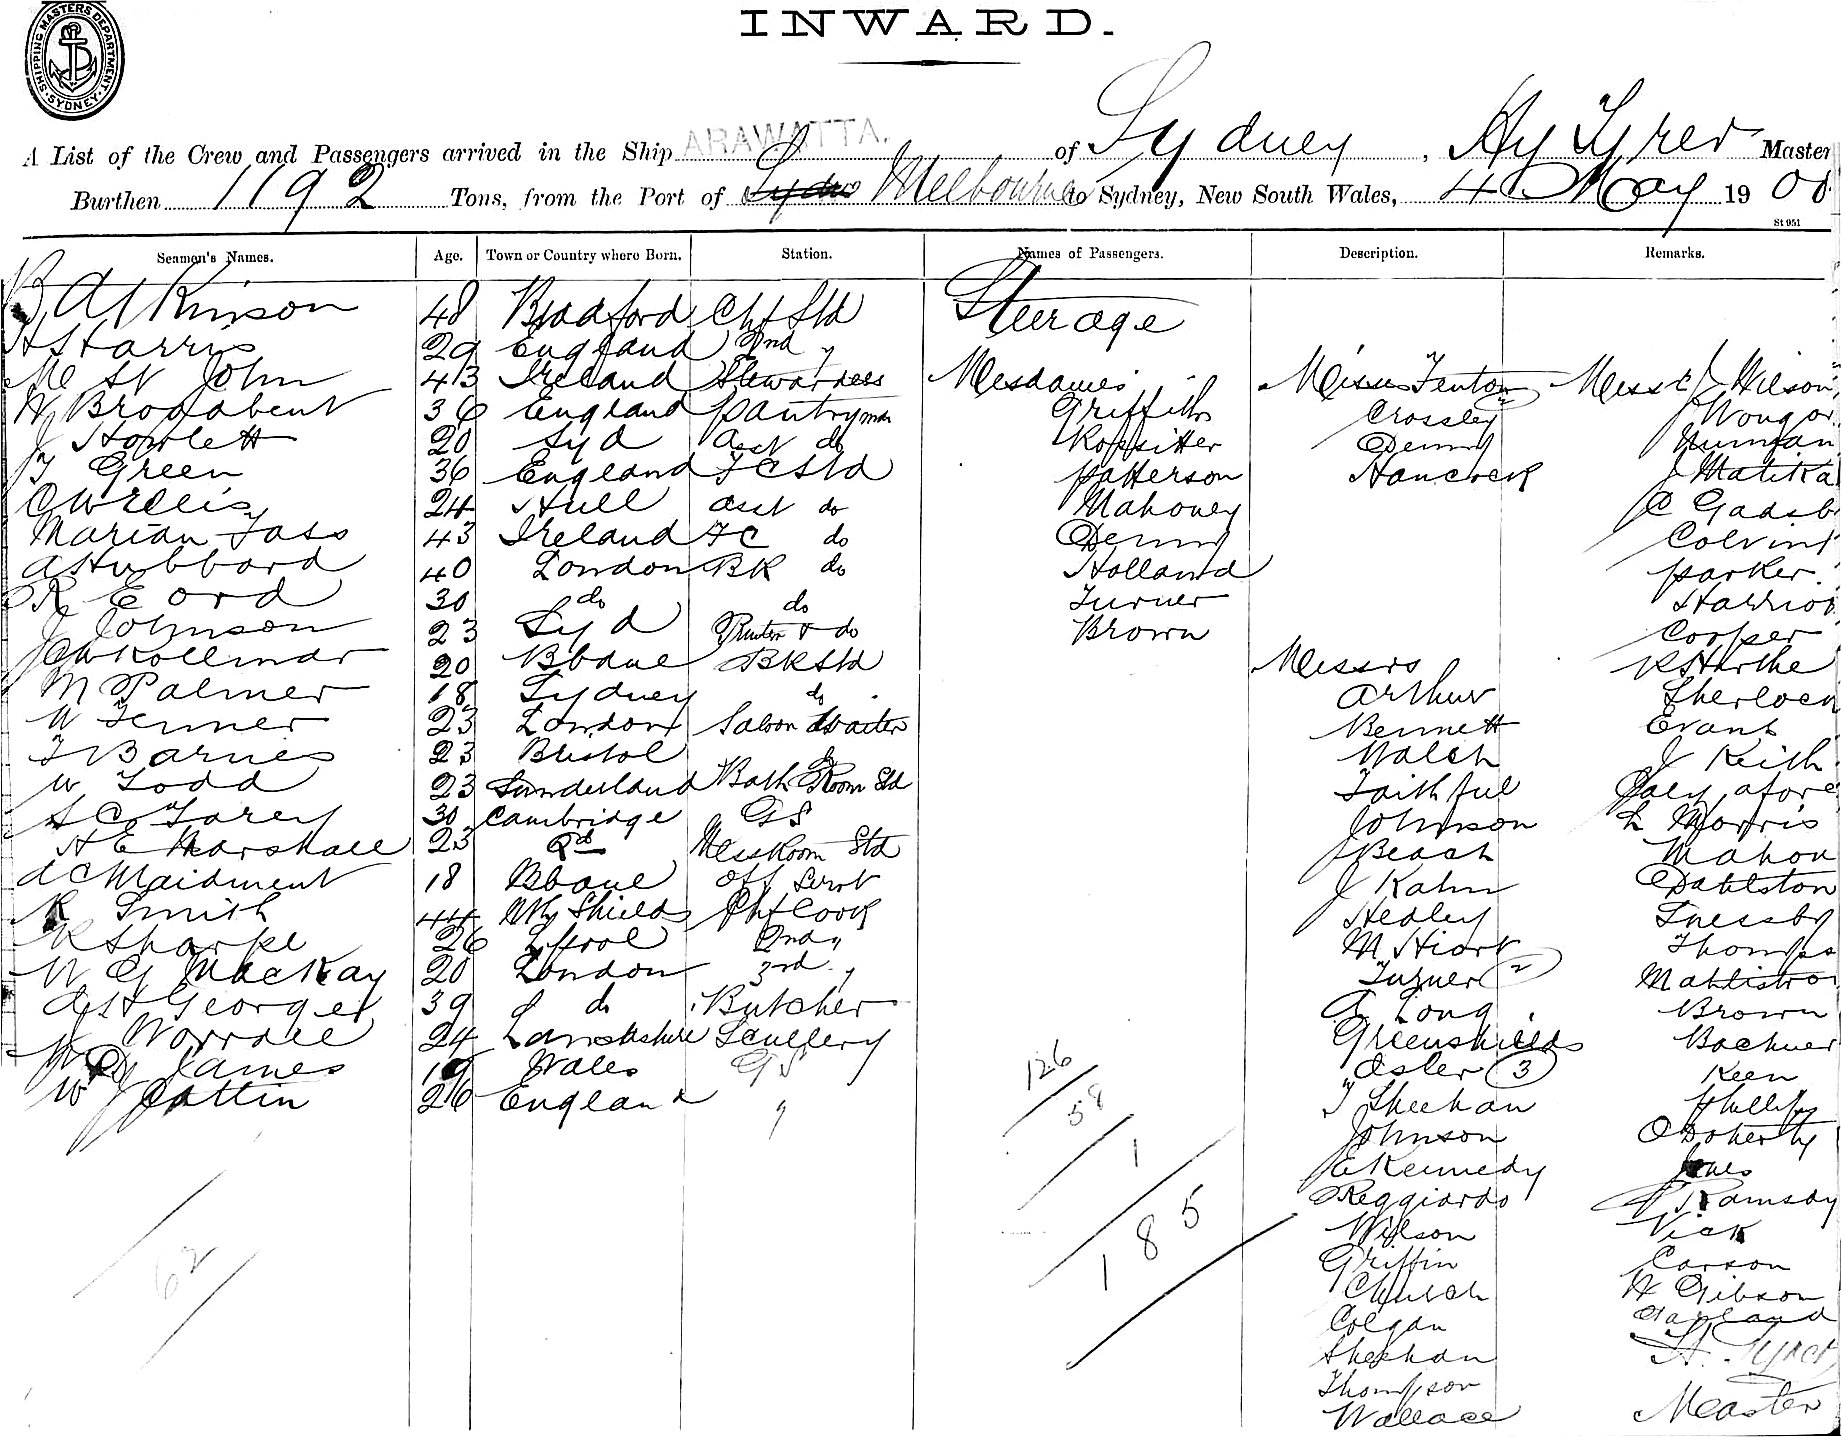 INWARD.
SHIPPING MASTERS DEPARTMENT
SYDNEY
A List of the Crew and Passengers arrived in the Ship ARAWATTA. of Sydney, Hy Tyrer Master
Burthen 1192 Tons, from the Port of Sydne Melbourne to Sydney, New South Wales, 4 May 1900
St 951
Seamen's Names. Age. Town or Country where Born. Station. Names of Passengers. Description. Remarks.
B Atkinson 48 Bradford Chf Std
H Harris 29 England 2nd "
M St John 43 Ireland Stewardess
H Broadbent 36 England Pantryman
J Howlett 20 Syd Asst do
T Green 36 England FC Std
C Willis 24 Hull asst do
Marian Tass 43 Ireland FC do
A Hubbard 40 London BK do
R E Ord 30 do do
J Johnson 23 Syd Printer & do
J C W Kollmar 20 Bbane BK Std
M Palmer 18 Sydney do
W Fenner 23 London Saloon Waiter
T Barnes 23 Bristol do
W Todd 23 Sunderland Bath Room Std
H C Farey 30 Cambridge GS
H E Marshall 23 Qd Mess Room Std
A C Maidment 18 Bbane Off Servt
R Smith 44 Nth Shields Chf Cook
R Sharpe 26 Lpool 2nd "
W G MacKay 20 London 3rd "
A St George 39 do Butcher
J Worrall 24 Lancashire Scullery
W James 19 Wales GS
W J Cattin 26 England "
62
Steerage
Mesdames
Griffiths
Rossitter
Patterson
Mahoney
Denny
Holland
Turner
Brown
126
58
1
185
Misses Fenton 2
Crossley
Denny
Hancock
Messrs
Arthur
Bennett
Walsh
Faithful
Johnson
J Beach
J Kahn
Hedley
M Hiort
Turner 2
A Long
Greenshields
Osler 3
T Sheehan
Johnson
J E Kennedy
Reggiardo
Wilson
Griffin
Church
Colgan
Sheehan
Thompson
Wallace
Messrs J Wilson
J Wongor
Numan
J Matika
C Gadsb
Colvin
Parker
Harrio
Cooper
R St
Sherlock
Evans
J Keith
L Morris
Mahon
Dahlston
Sneesby
Thomps
Mahlstro
Brown
Buchner
Keen
Phillip
O Doherty
Jones
Ramsay
Vick
Carson
H Gibson
Garland
H. Tyrer
Master